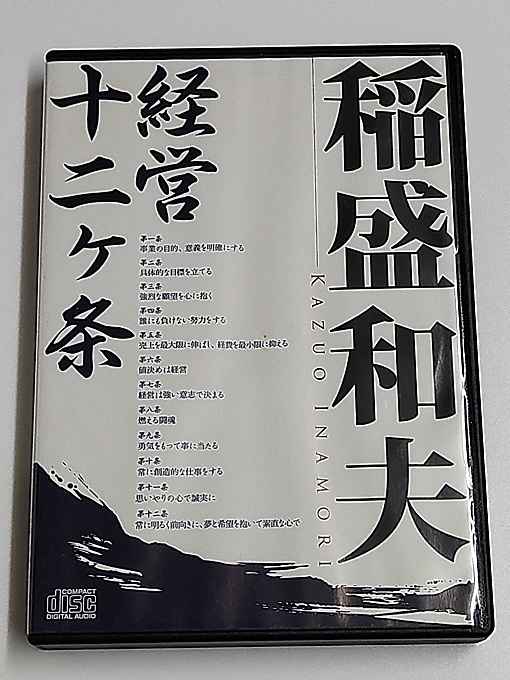 稲盛和夫
KAZUO INAMORI
経営
十二ケ条
第一条
事業の目的、意義を明確にする
第二条
具体的な目標を立てる
第三条
強烈な願望を心に抱く
第四条
誰にも負けない努力をする
第五条
売上を最大限に伸ばし、経費を最小限に抑える
第六条
値決めは経営
第七条
経営は強い意志で決まる
第八条
燃える闘魂
第九条
勇気をもって事に当たる
第十条
常に創造的な仕事をする
第十一条
思いやりの心で誠実に
第十二条
常に明るく前向きに、夢と希望を抱いて素直な心で
COMPACT
disc
DIGITAL AUDIO